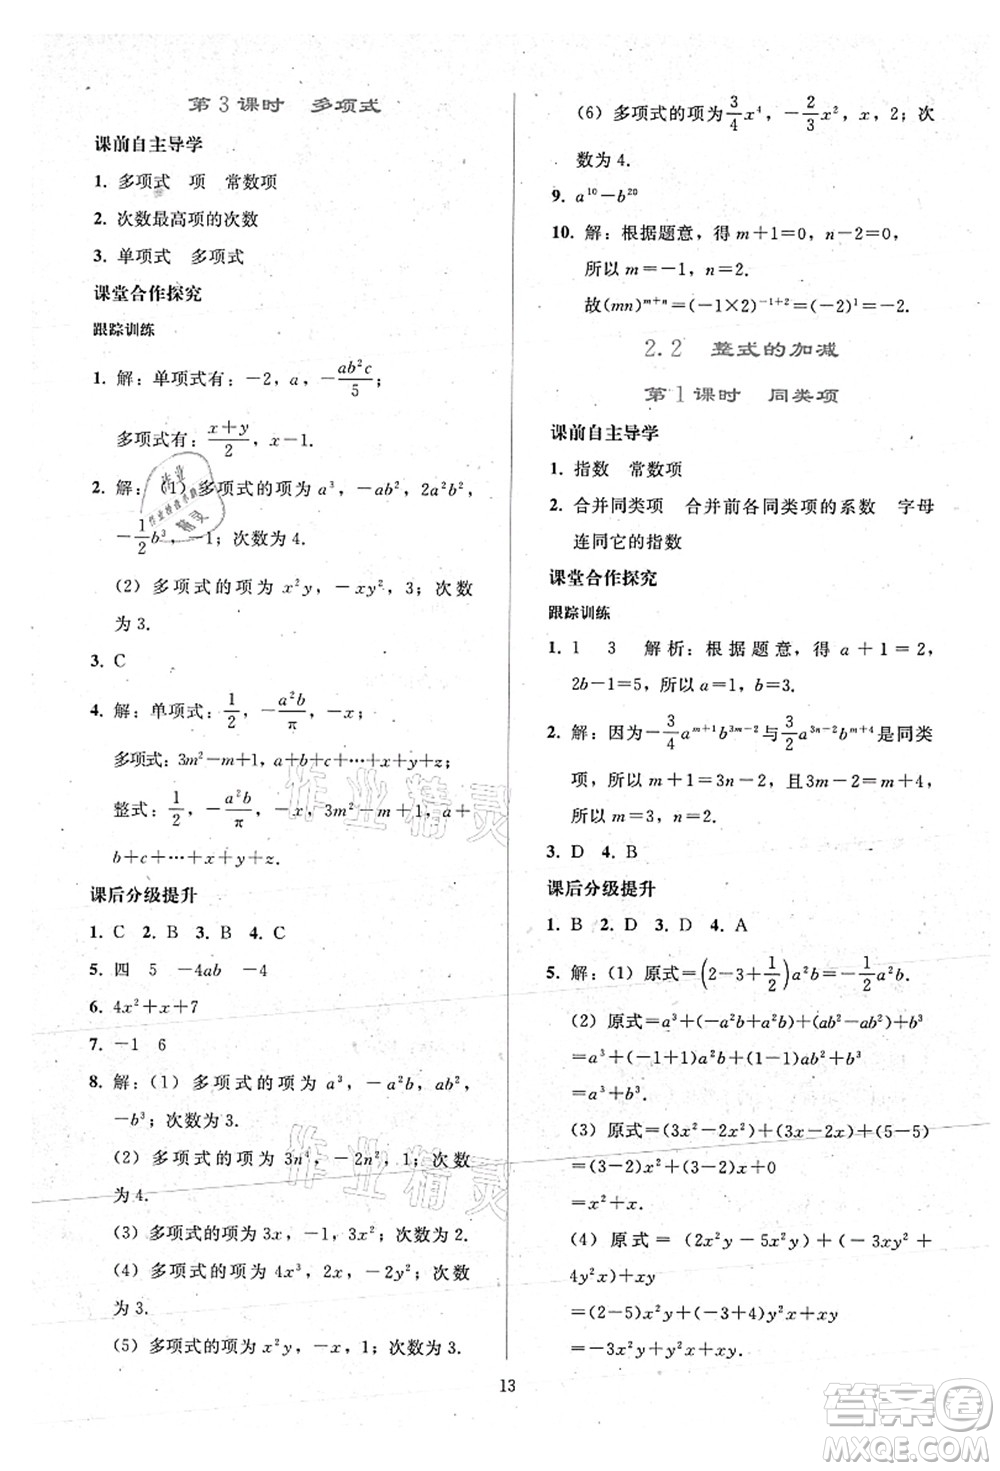 第3课时　多项式
课前自主导学
1. 多项式　项　常数项
2. 次数最高项的次数
3. 单项式　多项式
课堂合作探究
跟踪训练
1. 解：单项式有：－2，a，ab²c/5；
多项式有：(x＋y)/2，x－1.
2. 解：(1) 多项式的项为 a³，－ab²，2a²b²，
－1/2 b³，－1；次数为 4.
(2) 多项式的项为 x²y，－xy²，3；次数
为 3.
3. C
4. 解：单项式：1/2，－a²b/π，－x；
多项式：3m²－m＋1，a＋b＋c＋…＋x＋y＋z；
整式：1/2，－a²b/π，－x，3m²－m＋1，a＋
b＋c＋…＋x＋y＋z.
课后分级提升
1. C　2. B　3. B　4. C
5. 四　5　－4ab　－4
6. 4x²＋x＋7
7. －1　6
8. 解：(1) 多项式的项为 a³，－a²b，ab²，
－b³；次数为 3.
(2) 多项式的项为 3n⁴，－2n²，1；次数
为 4.
(3) 多项式的项为 3x，－1，3x²；次数为 2.
(4) 多项式的项为 4x³，2x，－2y²；次数
为 3.
(5) 多项式的项为 x²y，－xy；次数为 3.
(6) 多项式的项为 3/4 x⁴，－2/3 x²，x，2；次
数为 4.
9. a¹⁰－b²⁰
10. 解：根据题意，得 m＋1＝0，n－2＝0，
所以 m＝－1，n＝2.
故(mn)ᵐ⁺ⁿ＝(－1×2)⁻¹⁺²＝(－2)¹＝－2.
2.2　整式的加减
第1课时　同类项
课前自主导学
1. 指数　常数项
2. 合并同类项　合并前各同类项的系数　字母
连同它的指数
课堂合作探究
跟踪训练
1. 1　3　解析：根据题意，得 a＋1＝2，
2b－1＝5，所以 a＝1，b＝3.
2. 解：因为－3/4 aᵐ⁺¹b³ᵐ⁻²与3/2 a³ⁿ⁻²bᵐ⁺⁴是同类
项，所以 m＋1＝3n－2，且 3m－2＝m＋4，
所以 m＝3，n＝2.
3. D　4. B
课后分级提升
1. B　2. D　3. D　4. A
5. 解：(1) 原式＝(2－3＋1/2)a²b＝－1/2 a²b.
(2) 原式＝a³＋(－a²b＋a²b)＋(ab²－ab²)＋b³
＝a³＋(－1＋1)a²b＋(1－1)ab²＋b³
＝a³＋b³.
(3) 原式＝(3x²－2x²)＋(3x－2x)＋(5－5)
＝(3－2)x²＋(3－2)x
＝x²＋x.
(4) 原式＝(2x²y－5x²y)＋(－3xy²＋
4y²x)＋xy
＝(2－5)x²y＋(－3＋4)xy²＋xy
＝－3x²y＋xy²＋xy.
13
作业精灵
作业精灵
答案卷
MXQE.COM